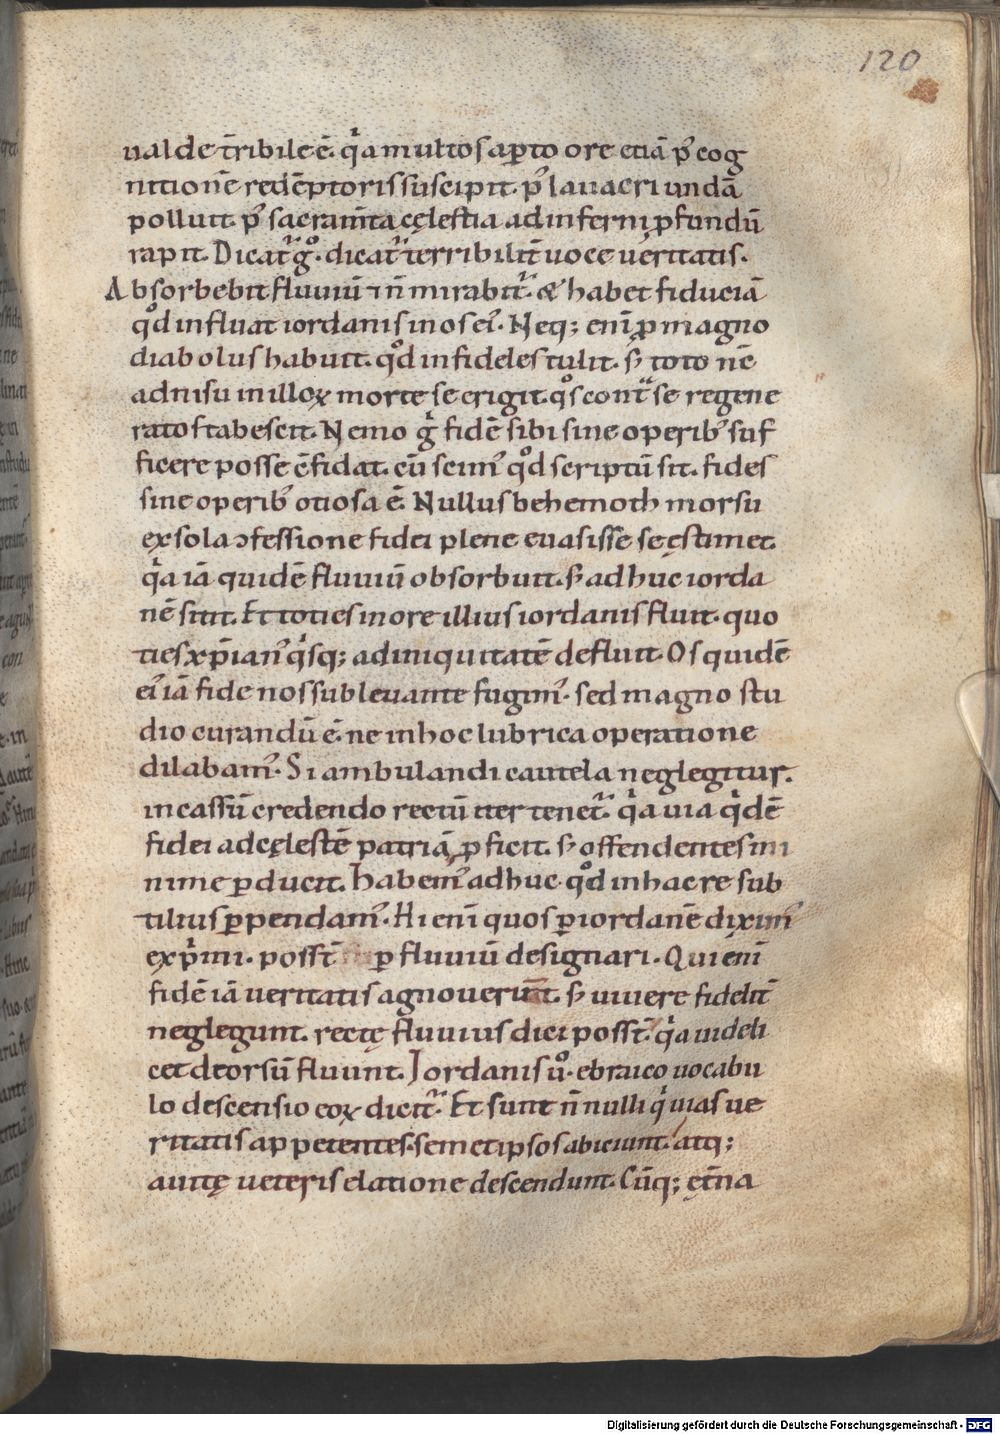 120
ualde t̄ribile ē. qͥa multos apto ore etiā p̾ cog
nitionē redēptoris suscipit. p̾ lauacri undā
polluit. p̾ sacram̄ta cęlestia ad inferni ꝓfundū
rapit. Dicat᷑ gͦ. dicat᷑ terribilit̄ uoce ueritatis.
Absorbebit fluuiū ⁊ n̄ mirabit᷑. & habet fiduciā
qͦd influat iordanis in os ei᾽. Neq; eni ꝓ magno
diabolus habuit. qͦd infideles tulit. s᷑ toto nc̄
adnisu in illoꝝ morte se erigit. qͦs contͣ se regene
ratos tabescit. Nemo gͥ fidē sibi sine operib᾽ suf
ficere posse c̄fidat. cū scim᾽ qͦd scriptū sit. fides
sine operib᾽ otiosa ē. Nullus behemoth morsu
ex sola ɔfessione fidei plene euasisse se ęstimet.
qͥa iā quidē fluuiū obsorbuit. s᷑ adhuc iorda
nē sitit. Et toties in ore illius iordanis fluit. quo
ties xp̄ian᾽ qͥsq; ad iniquitatē defluit. Os quidē
ei᾽ iā fide nos subleuante fugim᾽. sed magno stu
dio curandū ē. ne in hoc lubrica operatione
dilabam᾽. Si ambulandi cautela neglegitur.
in cassū credendo rectū iter tenet᷑. qͥa uia qͥdē
fidei ad cęlestē patriā ꝓficit. s᷑ offendentes mi
nime ꝑducit. Habem᾽ adhuc qͦd in hac re sub
tilius ꝑpendam᾽. Hi eni quos ꝑ iordanē dixim᾽
exp̄mi. poss̄t ꝑ fluuiū designari. Qui eni
fidē iā ueritatis agnouerun̄t. s᷑ uiuere fidelit̄
neglegunt. rectę fluuius dici poss̄t. qͥa uideli
cet deorsū fluunt. Iordanis uͦ. ebraico uocabu
lo descensio eoꝝ dicit᷑. Et sunt n̄nulli qͥ uias ue
ritatis appetentes. semetipsos abiciunt. atq;
a uitę ueteris elatione descendunt. Cūq; ęt̄na
Digitalisierung gefördert durch die Deutsche Forschungsgemeinschaft - DFG